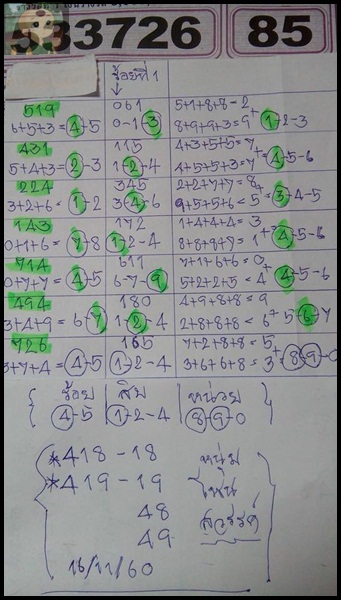 533726 85
ร้อยที่ 1
519 061 5+1+8+8=2
6+5+3=4-5 0-1-3 8+9+9+3=9+ 1-2-3
431 115 4+3+5+5=7
5+4+3=2-3 1-2-4 4+5+5+3=7+ 4-5-6
224 345 2+2+7+7=8
3+2+6=1-2 3-4-6 9+5+5+6=5+ 3-4-5
143 172 1+4+4+4=3
0+1+6=7-8 1-2-4 8+8+9+7=1+ 4-5-6
714 511 7+1+6+6=0
0+7+7=4-5 6-7-9 5+2+2+5=4+ 4-5-6
494 180 4+9+8+8=9
3+4+9=6-7 1-2-4 2+8+8+8=6+ 5-6-7
726 165 7+2+8+8=5
3+7+4=4-5 1-2-4 3+6+6+8=3+ 8-9-0
ร้อย สิบ หน่วย
4-5 1-2-4 8-9-0
*418-18 หนุ่ม
*419-19
48 สวรรค์
49
16/11/60